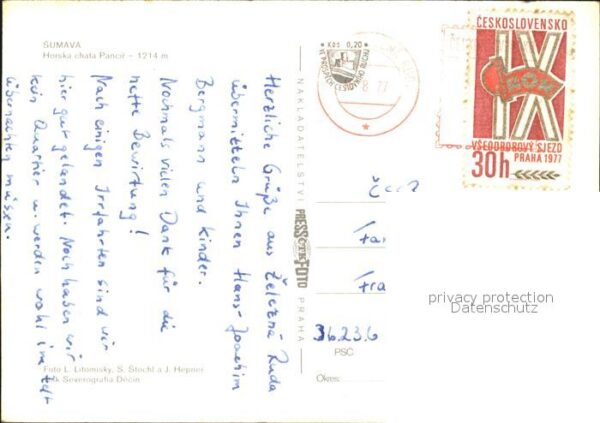 ŠUMAVA
Horská chata Pancíř - 1214 m
Herzliche Grüße aus Železná Ruda
übermitteln Ihnen Hans-Joachim
Bergmann und Kinder.
Nochmals vielen Dank für die
nette Bewirtung!
Nach einigen Irrfahrten sind wir
hier gut gelandet. Noch haben wir
kein Quartier u. werden wohl im Zelt
übernachten müssen.
Foto L. Litomiský, S. Štochl a J. Hepner
Tisk Severografia Děčín
NAKLADATELSTVÍ
PRESSFOTO
PRAHA
Kčs 0,20
8. 77
ČESKOSLOVENSKO
IX
VŠEODBOROVÝ SJEZD
PRAHA 1977
30h
36236
PSČ
Okres:
privacy protection
Datenschutz